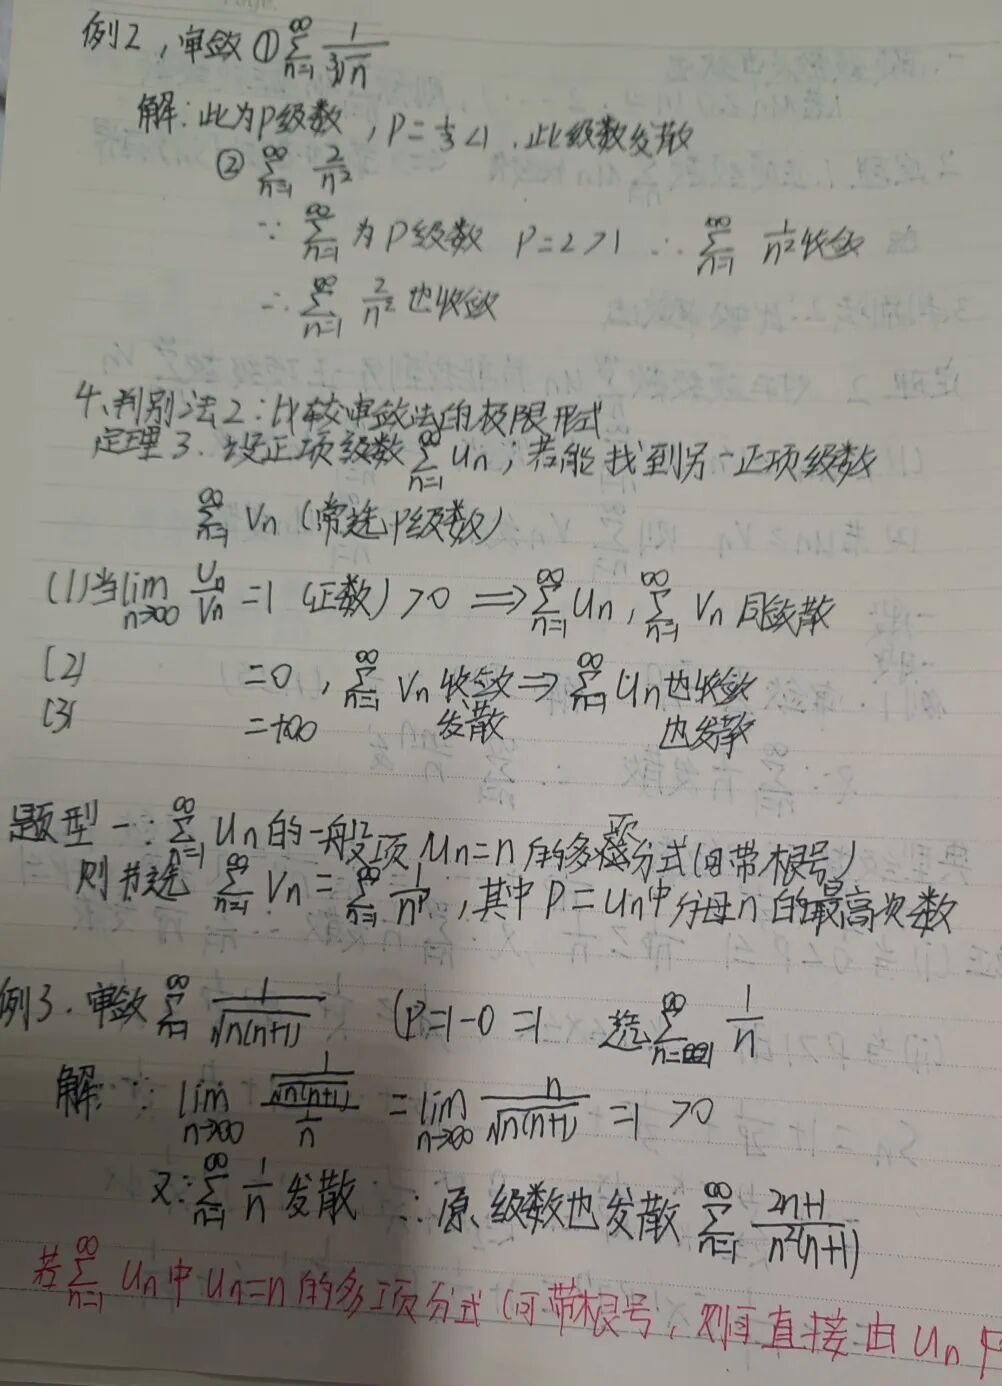 例2，审敛 ① ∑_{n=1}^{∞} 1/∛n
解：此为P级数，P=1/3<1，此级数发散
② ∑_{n=1}^{∞} 2/n²
∵ ∑_{n=1}^{∞} 为P级数 P=2>1 ∴ ∑_{n=1}^{∞} 1/n² 收敛
∴ ∑_{n=1}^{∞} 2/n² 也收敛
4、判别法2：比较审敛法的极限形式
定理3．设正项级数 ∑_{n=1}^{∞} Un；若能找到另一正项级数
∑_{n=1}^{∞} Vn (常选P级数)
(1)当 lim_{n→∞} Un/Vn = l (正数) >0 ⟹ ∑_{n=1}^{∞} Un，∑_{n=1}^{∞} Vn 同敛散
(2) =0，∑_{n=1}^{∞} Vn 收敛 ⟹ ∑_{n=1}^{∞} Un 也收敛
(3) =+∞ 发散 也发散
题型一：∑_{n=1}^{∞} Un 的一般项 Un=n的多项分式(可带根号)
则书选 ∑_{n=1}^{∞} Vn = ∑_{n=1}^{∞} 1/n^p，其中P=Un中分母n的最高次数
例3．审敛 ∑_{n=1}^{∞} 1/√(n(n+1)) (P=1-0=1 选 ∑_{n=1}^{∞} 1/n
解：∵ lim_{n→∞} (1/√(n(n+1)))/(1/n) = lim_{n→∞} n/√(n(n+1)) =1 >0
又∵ ∑_{n=1}^{∞} 1/n 发散 ∴原级数也发散 ∑_{n=1}^{∞} (2n+1)/(n²(n+1))
若 ∑_{n=1}^{∞} Un 中 Un=n的多项分式(可带根号，则可直接由Un中